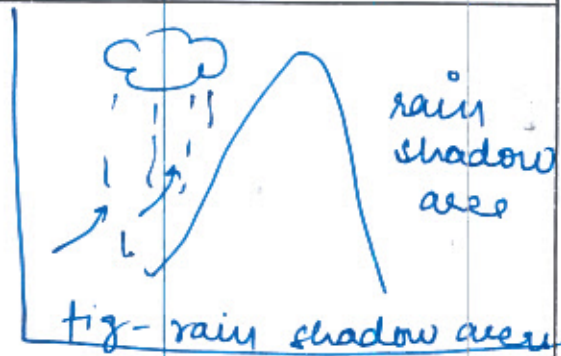 rain
shadow
area
fig- rain shadow area